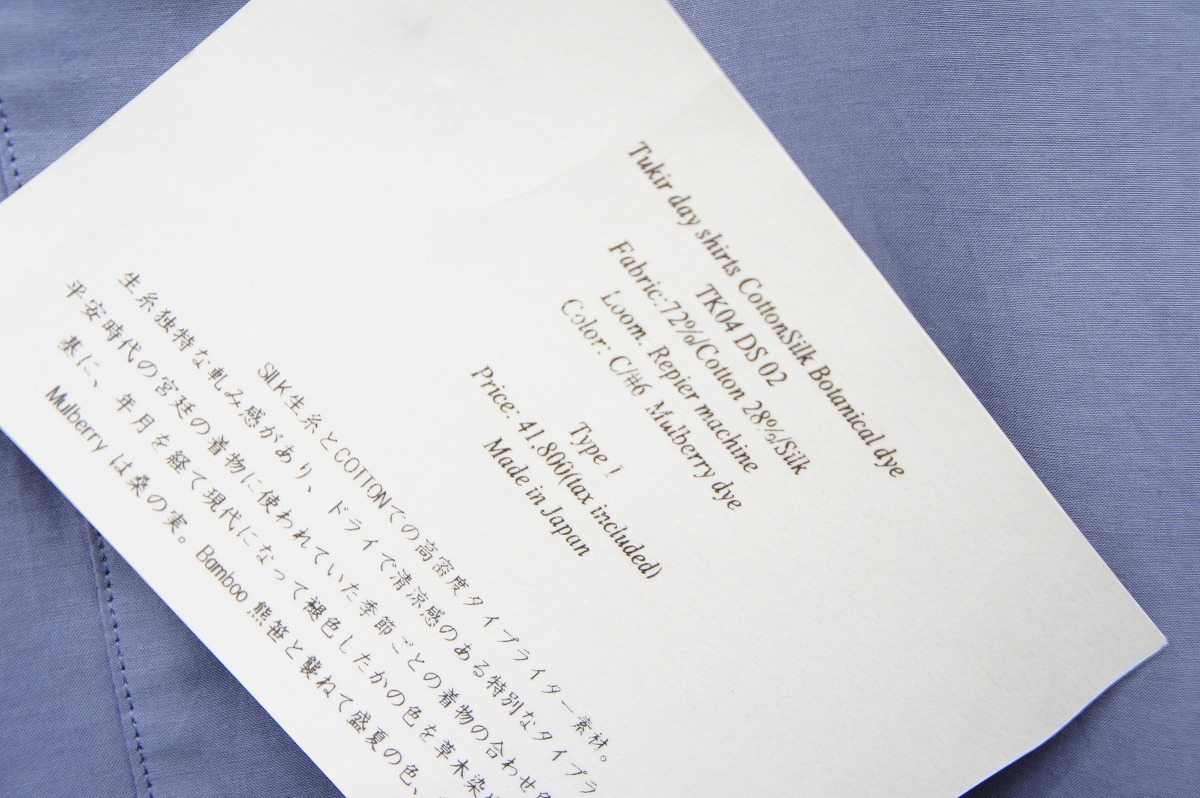 Tukir day shirts CottonSilk Botanical dye
TK04 DS 02
Fabric:72%/Cotton 28%/Silk
Loom. Repier machine
Color: C/#6 Mulberry dye
Type 1
Price: 41,800(tax included)
Made in Japan
SILK生糸とCOTTONでの高密度タイプライター素材。
生糸独特な軋み感があり、ドライで清涼感のある特別なタイプラ
平安時代の宮廷の着物に使われていた季節ごとの着物の合わせ色
基に、年月を経て現代になって褪色したかの色を草木染
Mulberry は桑の実。Bamboo 熊笹と襲ねて盛夏の色、